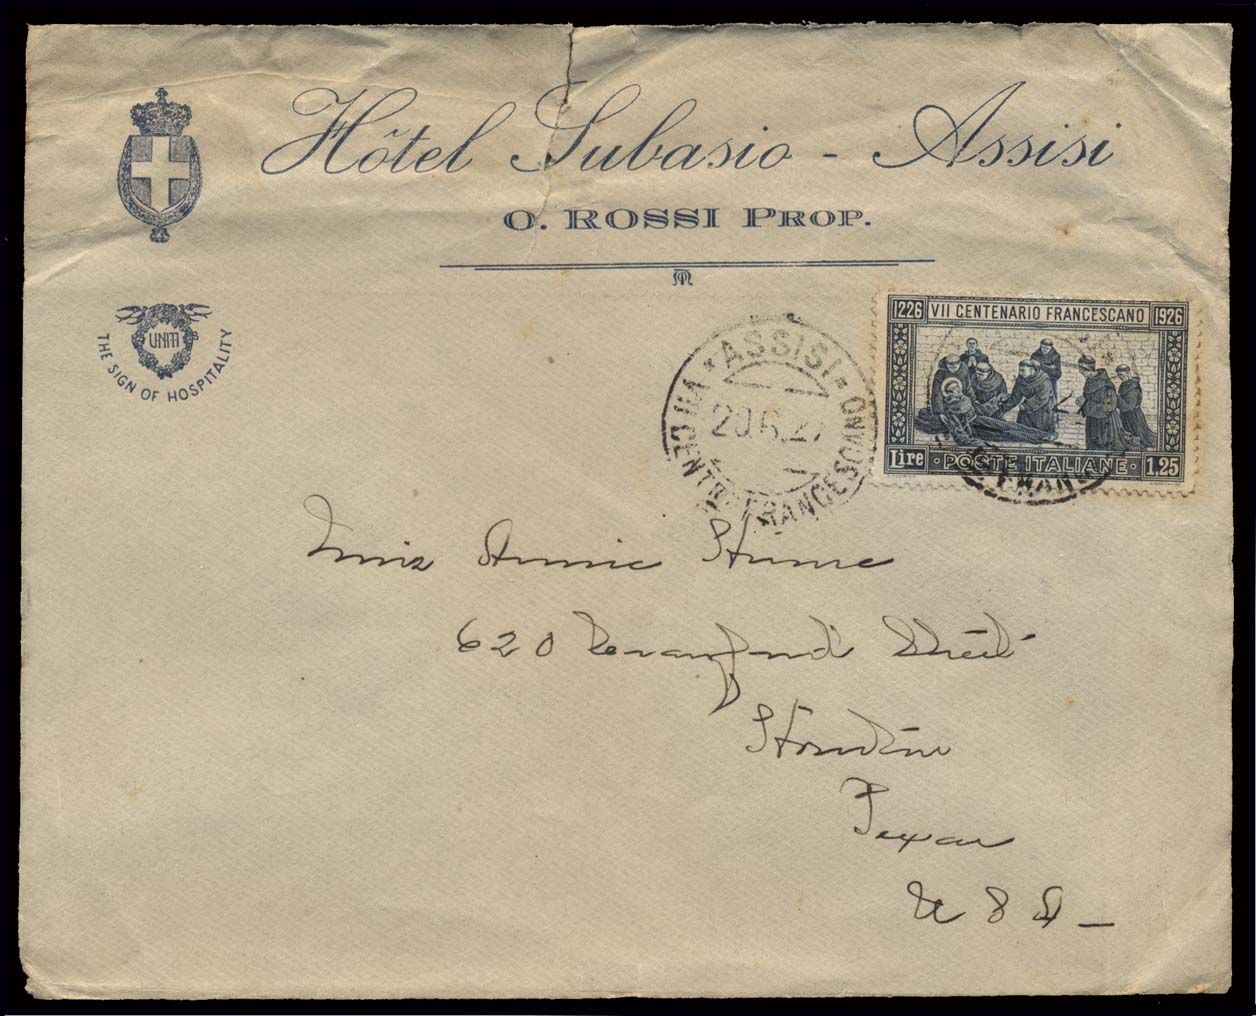 Hôtel Subasio - Assisi
O. ROSSI PROP.
UNITI
THE SIGN OF HOSPITALITY
ASSISI
VII CENTR. FRANCESCANO
20.6.27
1226 VII CENTENARIO FRANCESCANO 1926
Lire POSTE ITALIANE 1,25
Miss Annie Hume
620 Street
Houston
Texas
U S A